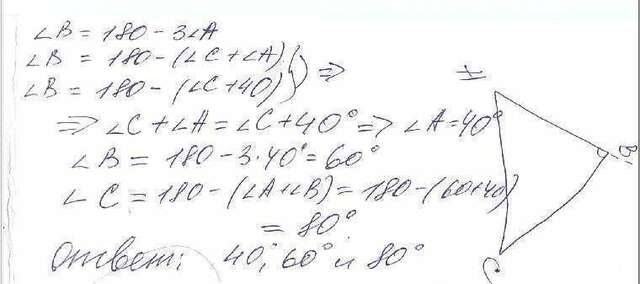 ∠B = 180 - 3∠A
∠B = 180 - (∠C + ∠A)
∠B = 180 - (∠C + 40) } ⇒
⇒ ∠C + ∠A = ∠C + 40° ⇒ ∠A = 40°
∠B = 180 - 3·40° = 60°
∠C = 180 - (∠A + ∠B) = 180 - (60 + 40)
= 80°
Ответ: 40°, 60° и 80°
A
B
C